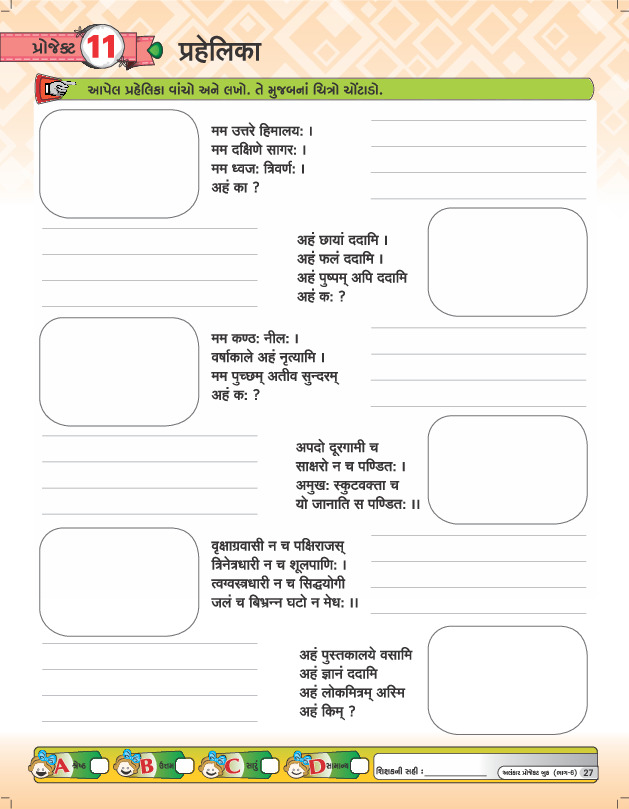 પ્રોજેક્ટ 11 પ્રહેલિકા
આપેલ પ્રહેલિકા વાંચો અને લખો. તે મુજબનાં ચિત્રો ચોંટાડો.
मम उत्तरे हिमालय: ।
मम दक्षिणे सागर: ।
मम ध्वज: त्रिवर्ण: ।
अहं का ?
अहं छायां ददामि ।
अहं फलं ददामि ।
अहं पुष्पम् अपि ददामि
अहं क: ?
मम कण्ठ: नील: ।
वर्षाकाले अहं नृत्यामि ।
मम पुच्छम् अतीव सुन्दरम्
अहं क: ?
अपदो दूरगामी च
साक्षरो न च पण्डित: ।
अमुख: स्कुटवक्ता च
यो जानाति स पण्डित: ।।
वृक्षाग्रवासी न च पक्षिराजस्
त्रिनेत्रधारी न च शूलपाणि: ।
त्वग्वस्त्रधारी न च सिद्धयोगी
जलं च बिभ्रन्न घटो न मेध: ।।
अहं पुस्तकालये वसामि
अहं ज्ञानं ददामि
अहं लोकमित्रम् अस्मि
अहं किम् ?
A શ્રેષ્ઠ B ઉત્તમ C સારું D સામાન્ય શિક્ષકની સહી : અલંકાર પ્રોજેક્ટ બુક (ભાગ-6) 27